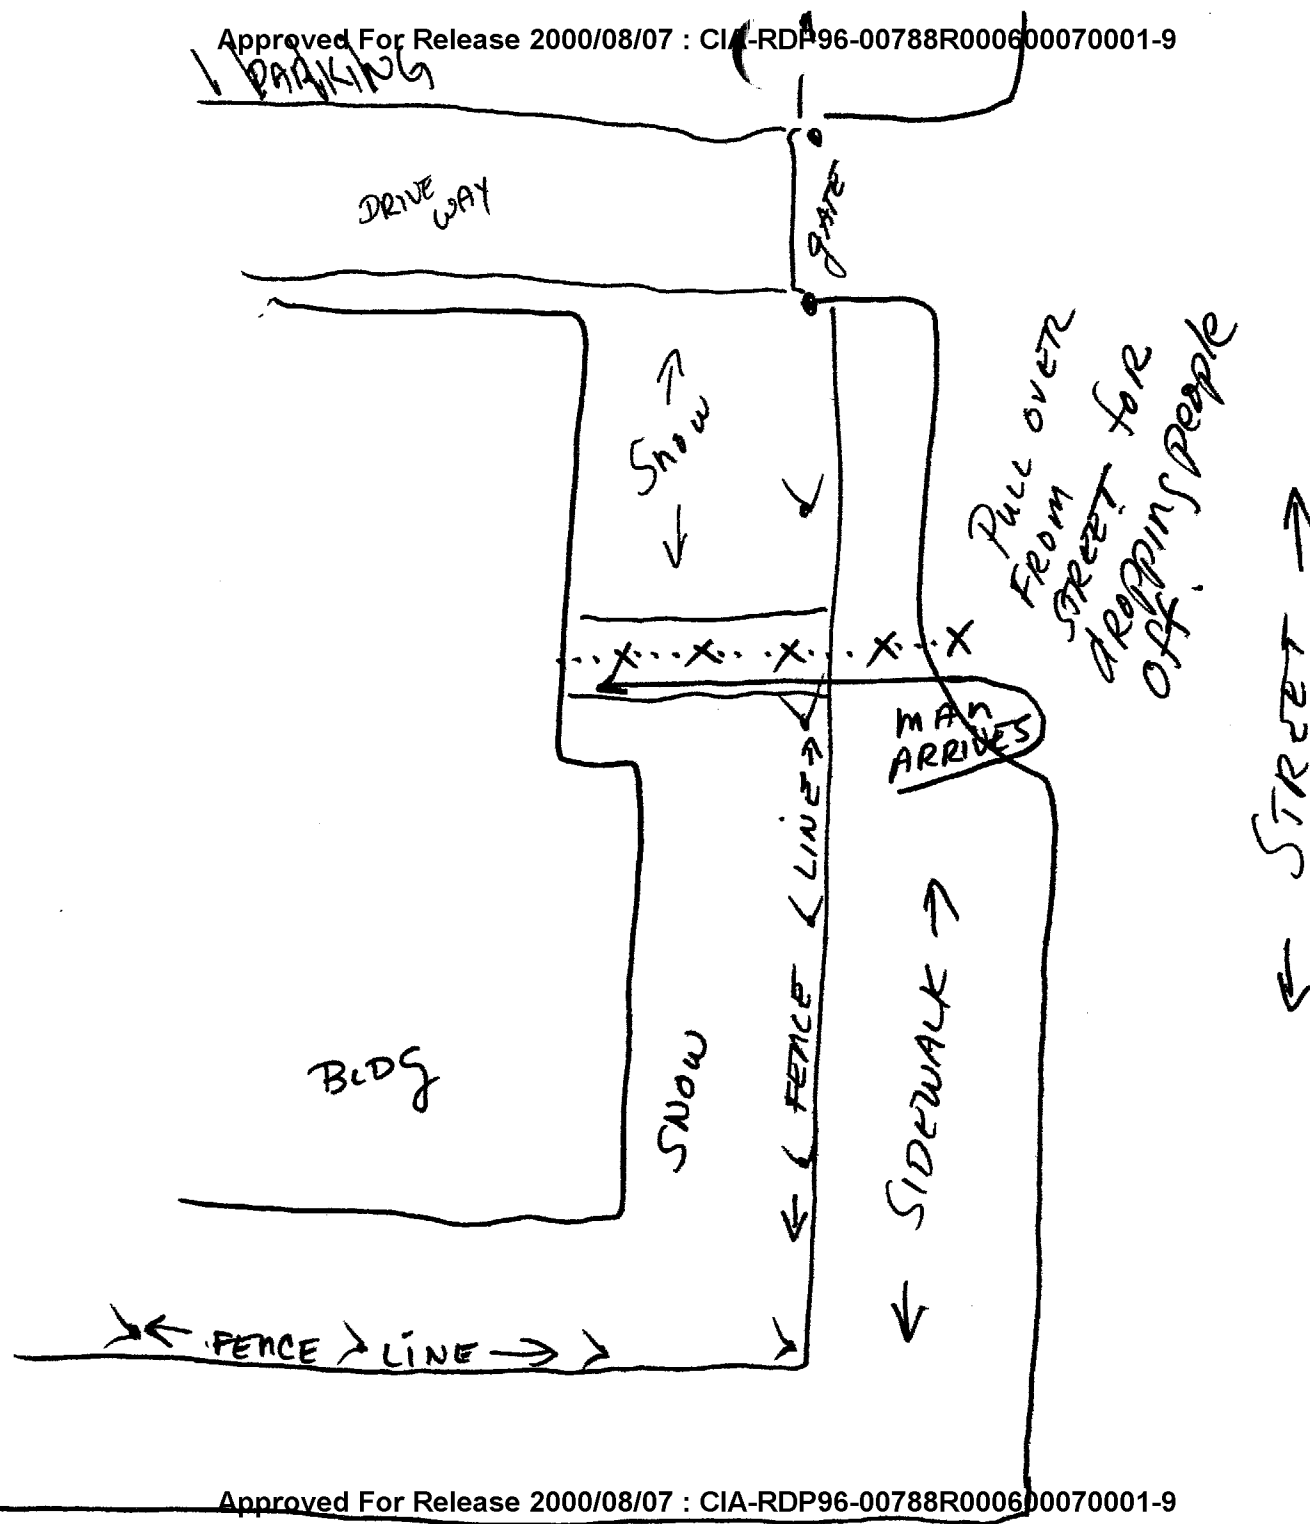 Approved For Release 2000/08/07 : CIA-RDP96-00788R000600070001-9
PARKING
DRIVE
WAY
gATE
Snow
PULL OVER
FROM
STREET for
dROPPINg people
Off.
STREET
X X X X X
mAn
ARRIVES
FENCE LINE
SIDEWALK
BLDg
SNOW
FENCE LINE
Approved For Release 2000/08/07 : CIA-RDP96-00788R000600070001-9